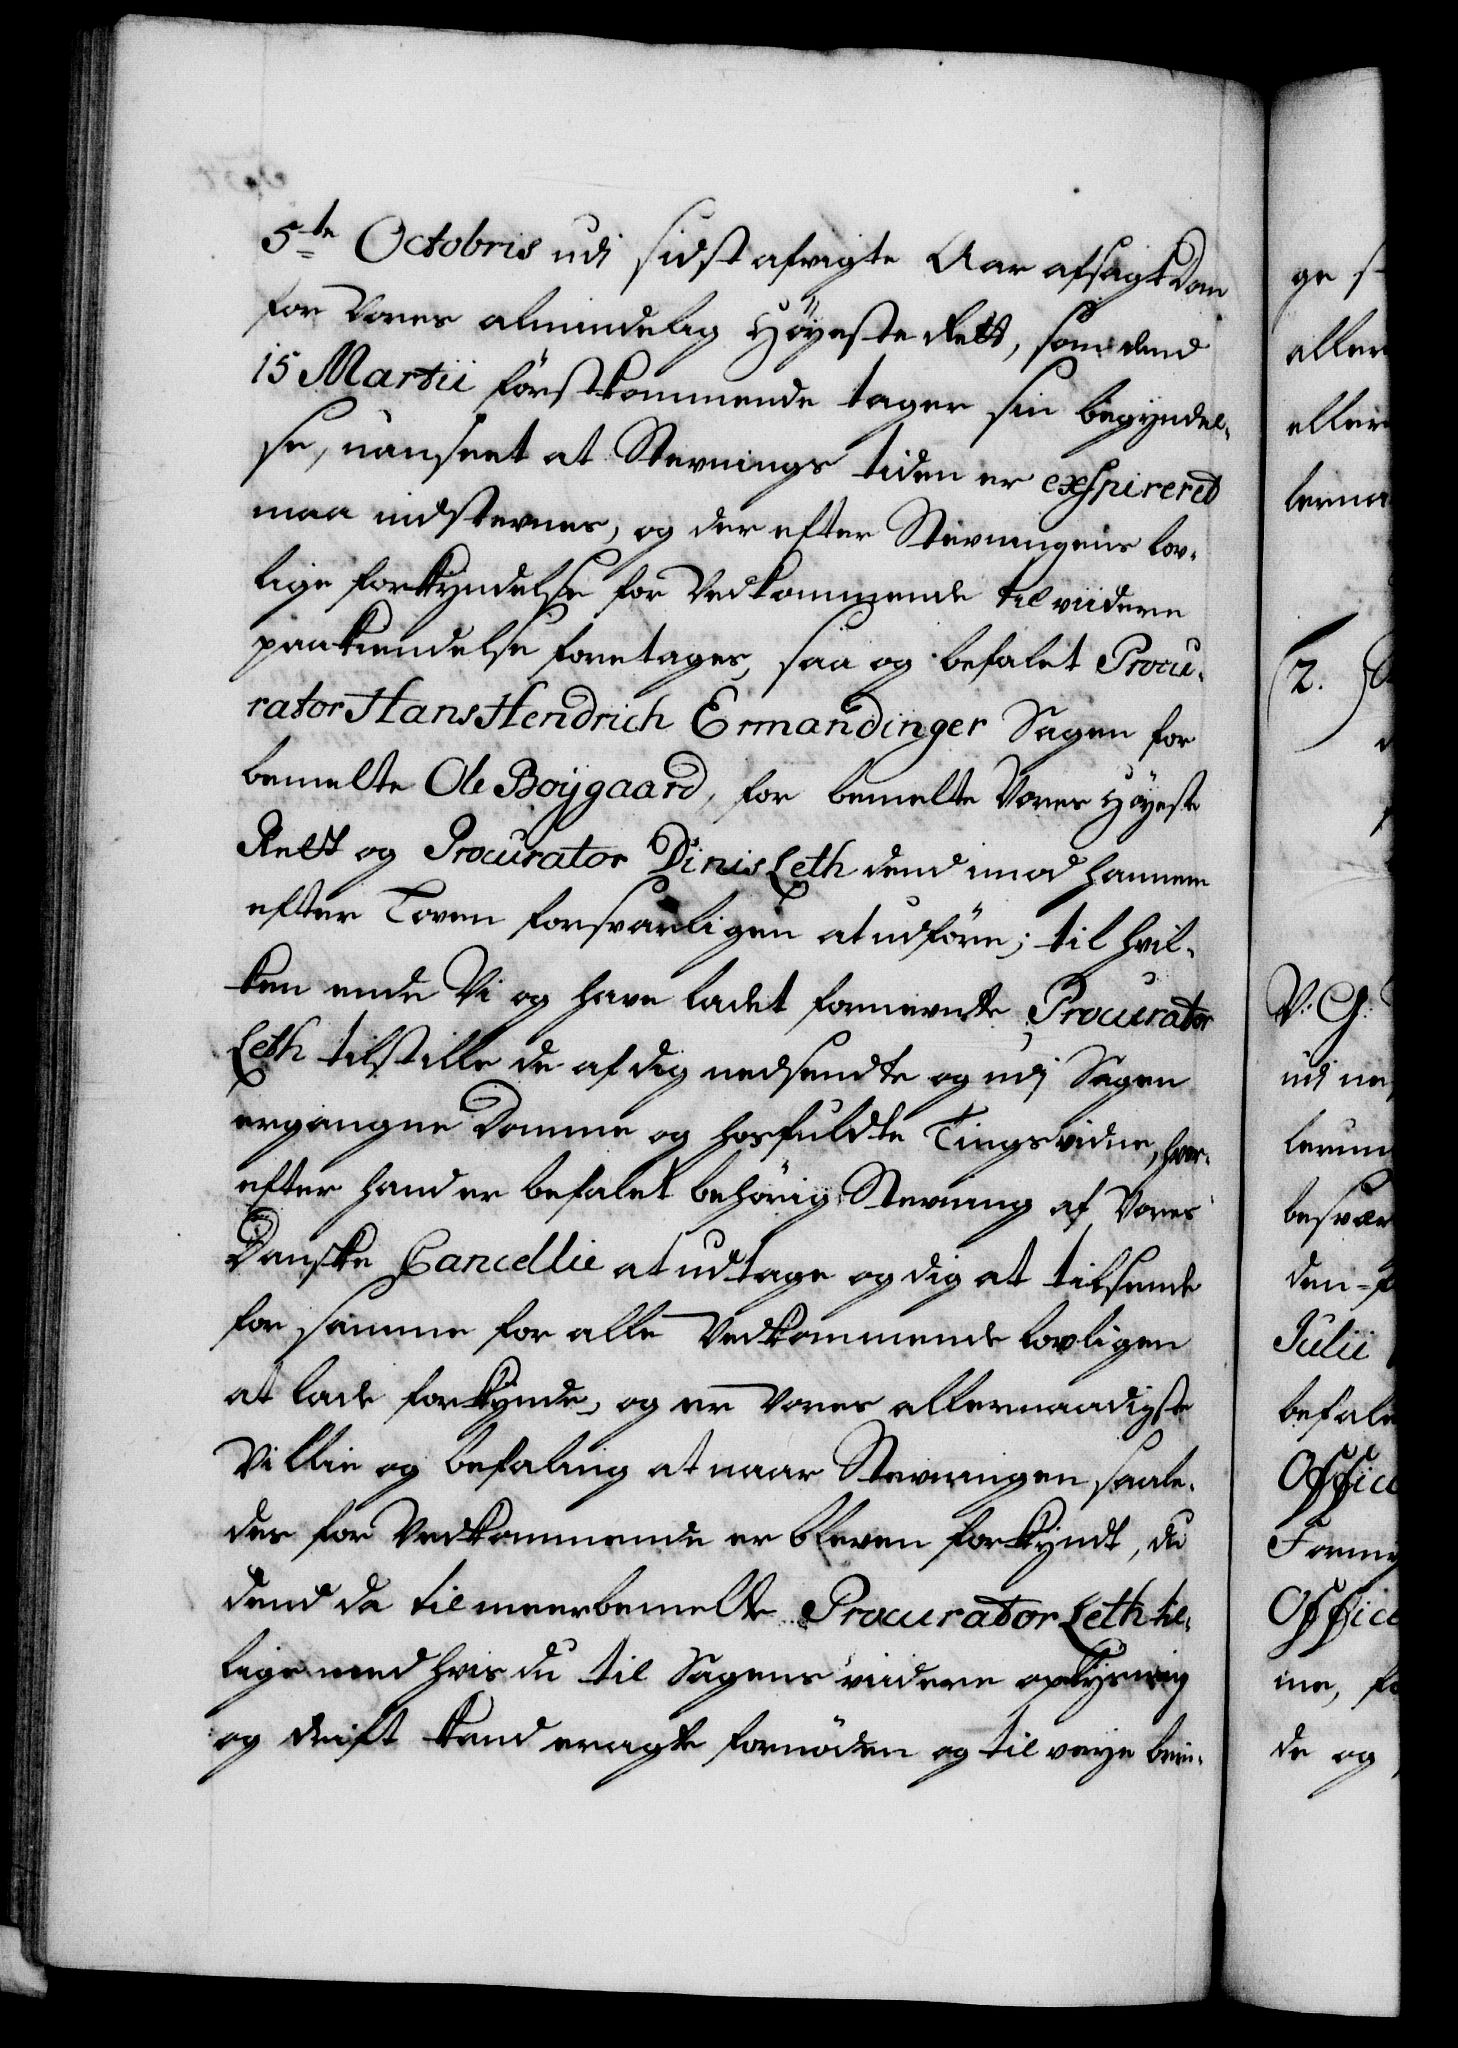 5te Octobris udi sidst afvigte Aar afsagt Dom
for Vores almindelig Höyeste Rett, som dend
15 Martii förstkommende tager sin begyndel-
se, uanseet at Stevnings tiden er exspireret
maa indstevnes, og der efter Stevningens lov-
lige forkyndelse for Vedkommende til viidere
paakiendelse foretages, saa og befalet Procu-
rator Hans Hendrich Ermandinger Sagen for
bemelte Ole Boÿgaard, for bemelte Vores Höyeste
Rett og Procurator Dinis Leth dend imod hannem
efter Loven forsvarligen at udföre; til hvil-
ken ende Vi og have ladet fornevnte Procurator
Leth tilstille de af dig nedsendte og udi Sagen
ergangne Domme og hosfuldte Tingsvidne, hvor-
efter hand er befalet behörig Stevning af Vores
Danske Cancellie at udtage og dig at tilsende
for samme for alle Vedkommende lovligen
at lade forkynde, og er Vores allernaadigste
Villie og befaling at naar Stevningen saale-
des for Vedkommende er bleven forkyndt, du
dend da til meerbemelte Procurator Leth til-
lige med hvis du til Sagens viidere oplysning
og drift kand eragte fornöden og til veye brin-
ge s
aller
eller
lerna
2.
V: G:
udi ne
lerun
besvær
den
Julii
befale
Office
Formy
Office
me, fo
de og